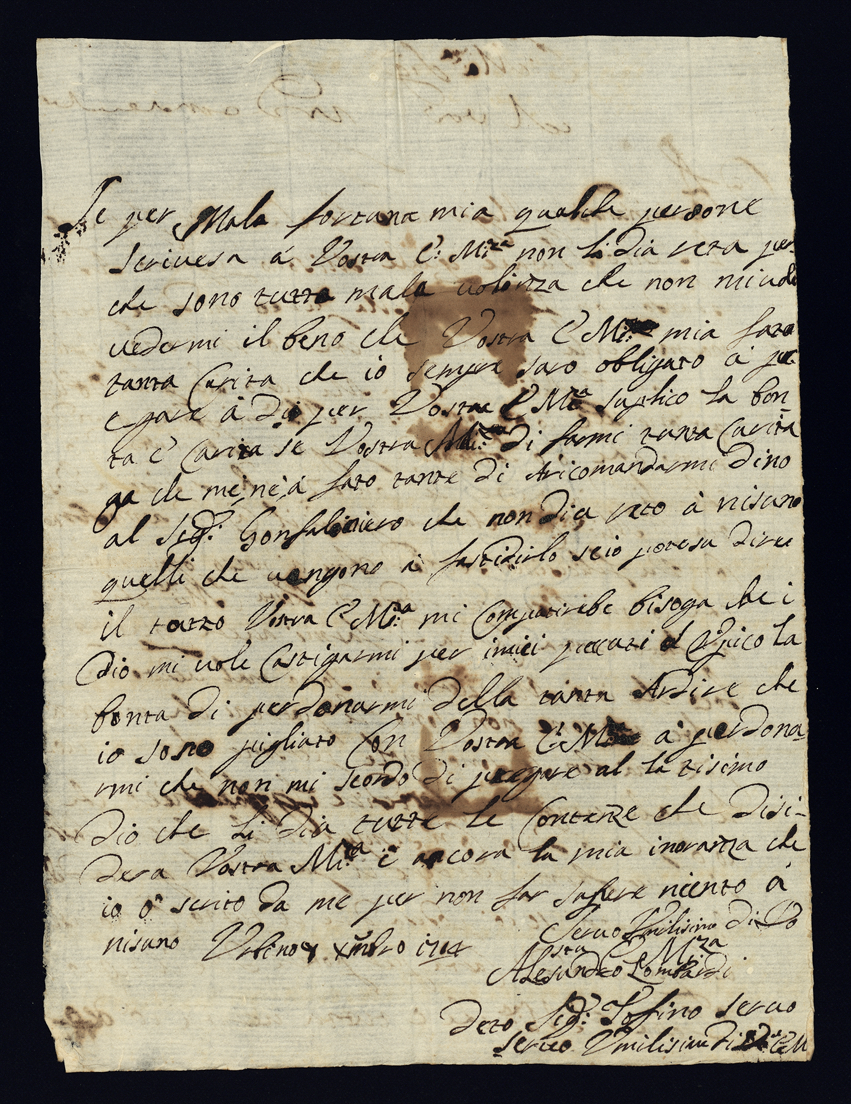 Se per Mala fortuna mia qualche persone
scrivesa á Vostra E: Mi:za non li dia reta per
che sono tutta mala volonza che non mi vole
vedermi il beno che Vostra E Mi: mia fato
tanta Carita che io sempre saro obligato à pre
egare à Dio per Vostra E Mi:a suplico la bon
ta è Carita se Vostra Mi:za di farmi tanta Carita
che me ne à fato tante di Aricomandarmi di no
al Sig:r Gonfaloniero che non dia reto à nisuno
quelli che vengono à fastidirlo se io potesa dire
il tutto Vostra E Mi:a mi Compatirebe bisoga che i
Dio mi vole Castigarmi per i miei peccati suplico la
bonta di perdonarmi della tanta Ardire che
io sono pigliato Con Vostra E Mi: à perdona-
rmi che non mi scordo di pregare al la tisimo
Dio che li dia tutte le Contenze che disi-
dera Vostra Mi:za è ancora la mia inoranza che
io ó scrito da me per non far sapere niento à
nisuno Urbino Xmbro
Servo Umilisimo di Vo
stra E Mi:za
Alesandro Lombardi
Deto Sig:r Toffino servo
servo Umilisimo di V:a E M